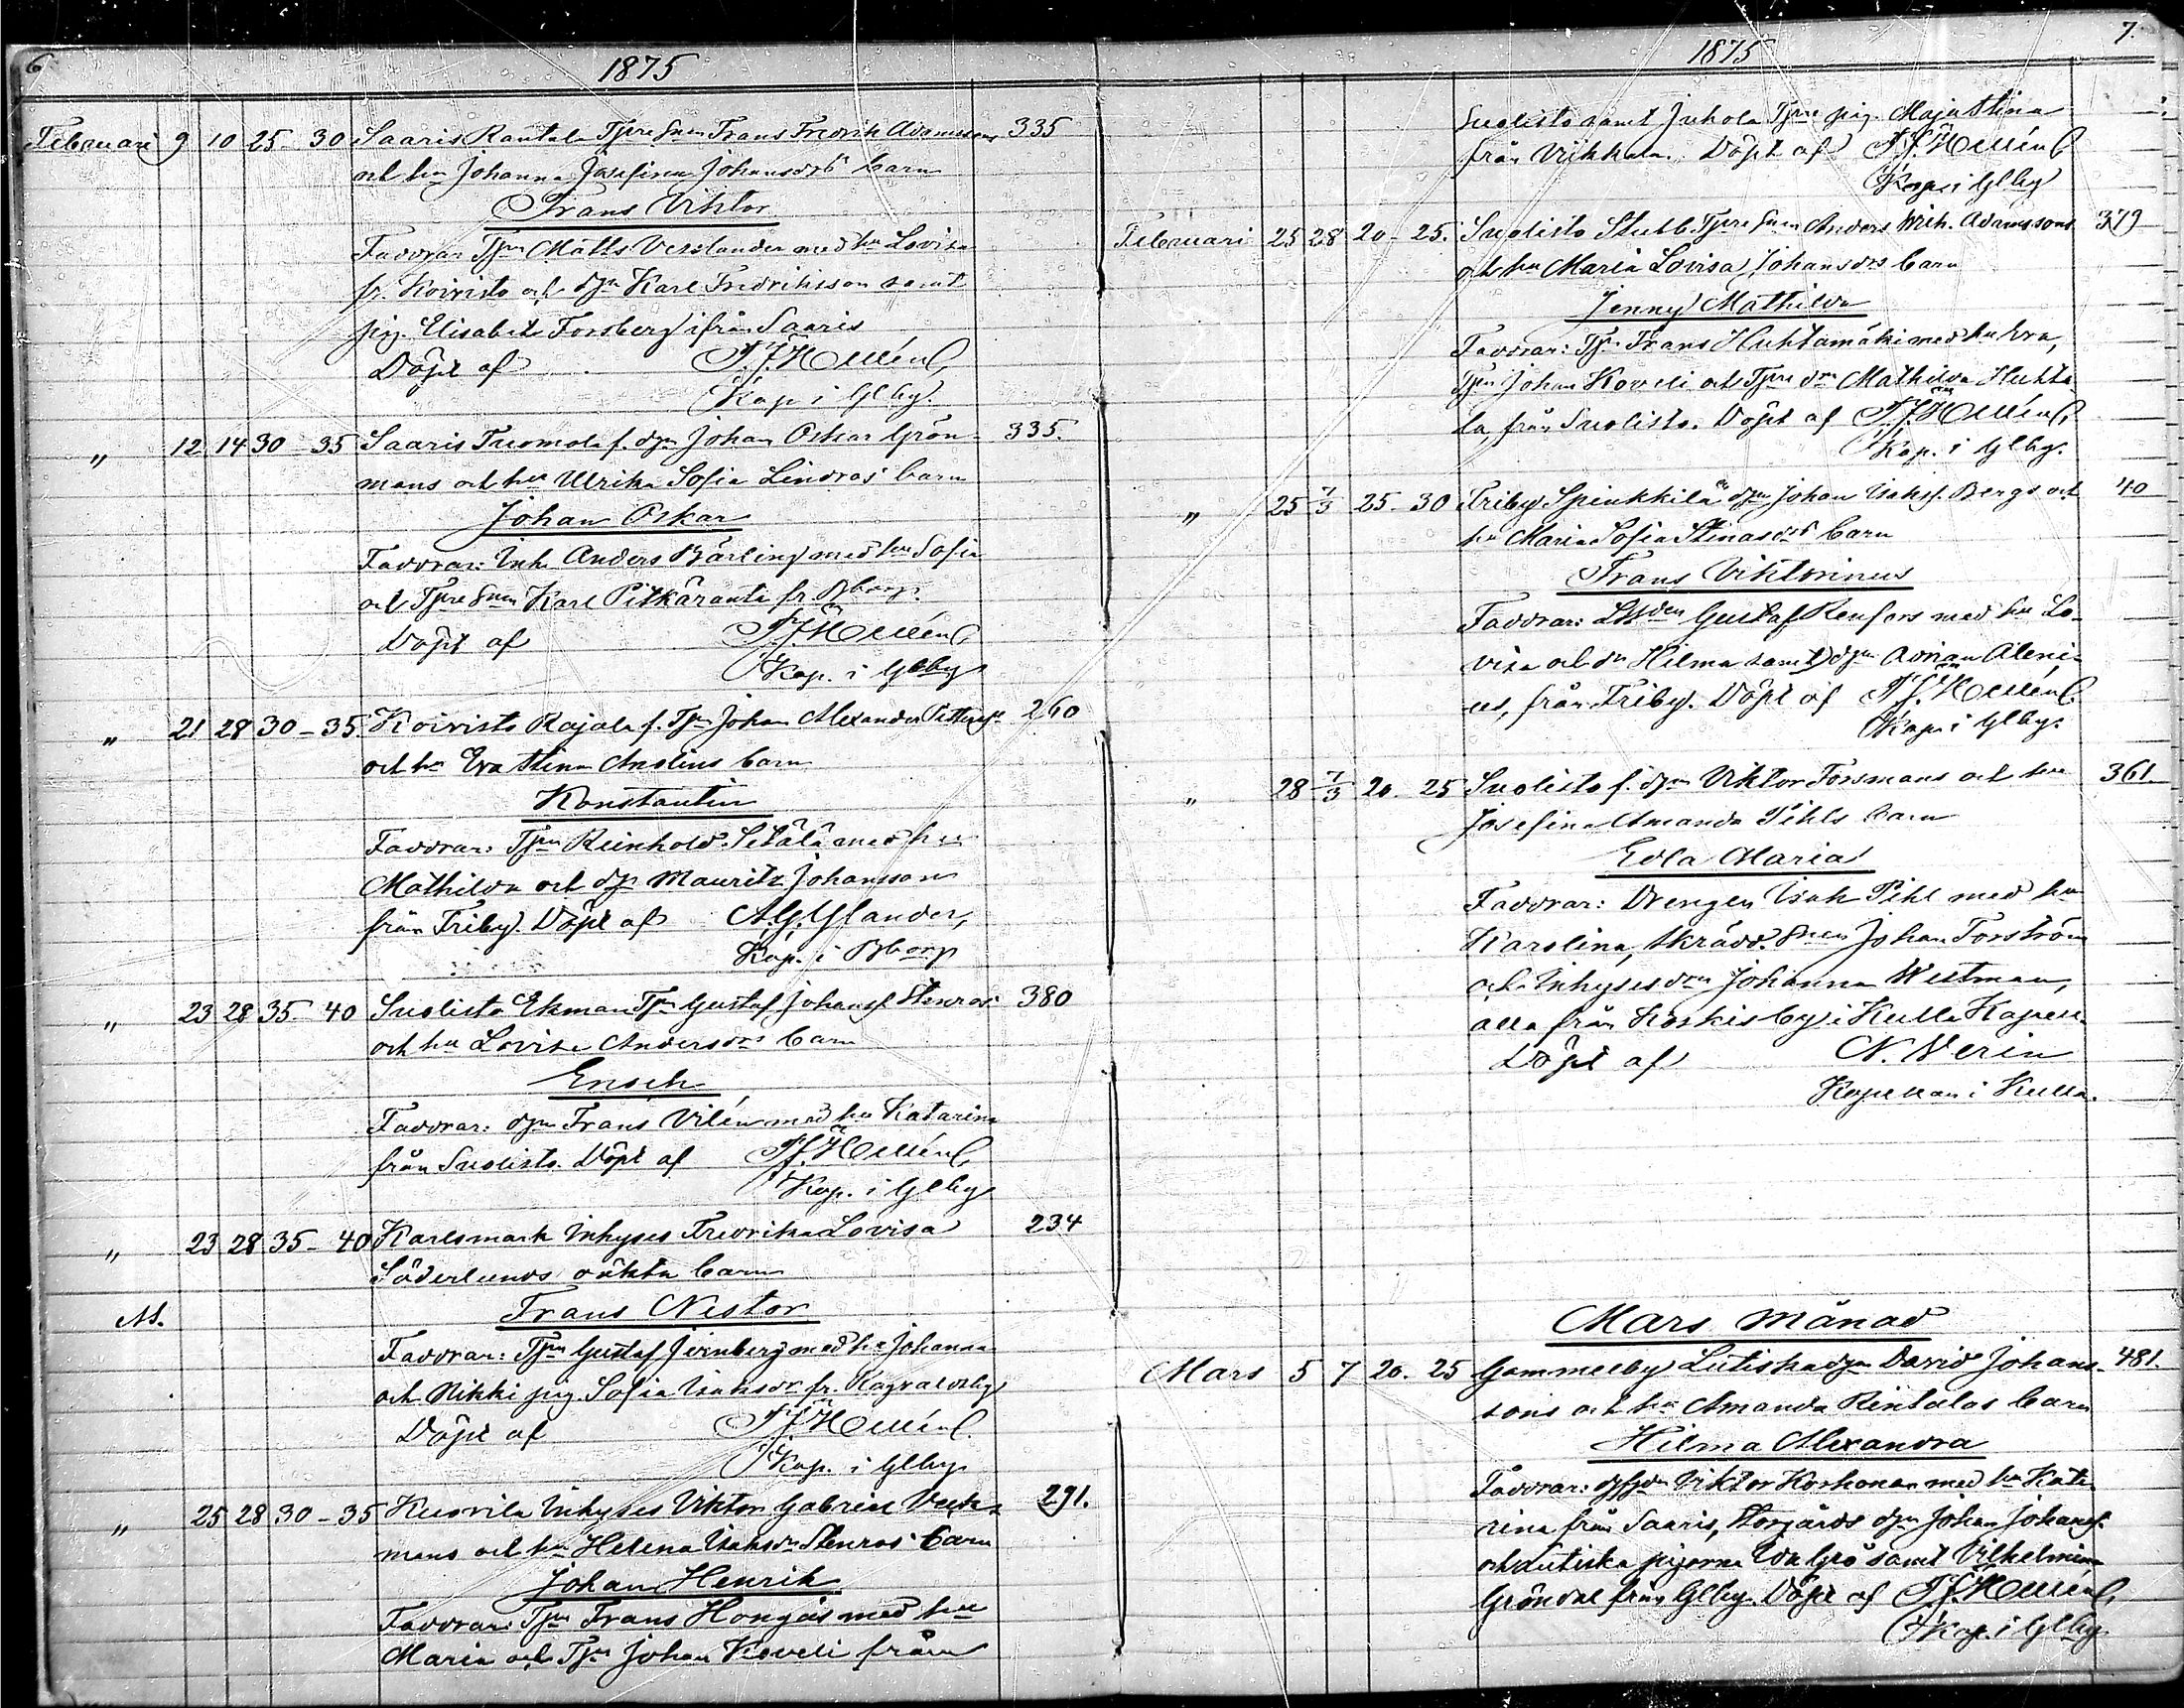 6
1875
Februari 9 10 25 - 30 Saaris Rantala Tpre Snen Frans Fredrik Adamssons 335
och hu Johanna Josefina Johansdrs barn
Frans Viktor
Faddrar Tpn Matts Vesslander med hu Lovisa
fr. Koivisto och dgn Karl Fredriksson samt
pig. Elisabet Forsberg ifrån Saaris
Döpt af
Kap. i Glby.
" 12 14 30 - 35 Saaris Tuomola f. dgn Johan Oskar Grön- 335.
mans och hu Ulrika Sofia Lindros barn
Johan Oskar
Faddrar: Inh. Anders Bärling med hu Sofia
och Tpre Snen Karl Pitkäranta fr. Bborg.
Döpt af
Kap. i Glby
" 21 28 30 - 35 Koivisto Rajala f. Tpn Johan Alexander 260
och hu Eva Stina Anolins barn
Konstantin
Faddrar: Tpn Reinhold Setälä med hu
Mathilda och dgn Mauritz Johansson
från Friby. Döpt af A.G. Ylander,
Kap. i Bborg
" 23 28 35 - 40 Suolisto Ekman Tpn Gustaf Johanss. Stenros 380
och hu Lovisa Andersdrs barn
Enoch
Faddrar: dgn Frans Vilén med hu Katarina
från Suolisto. Döpt af
Kap. i Glby
" 23 28 35 - 40 Karlsmark Inhyses Fredrika Lovisa 234
Söderlunds oäkta barn
Frans Nestor
Faddrar: Tpn Gustaf med hu Johanna
och Nikki pig. Sofia Isaksdr fr. Ragvaldsby
Döpt af
Kap. i Glby
" 25 28 30 - 35 Kuorila Inhyses Viktor Gabriel Veck- 291.
mans och hu Helena Isaksdr Stenros barn
Johan Henrik
Faddrar: Tpn Frans Hongas med hu
Maria och Tpn Johan Koveli från
7.
1875
Suolisto samt Juhola Tpre pig. Maja Stina
från Viikkala. Döpt af
Kap. i Glby
Februari 25 28 20 - 25. Suolisto Stubb Tpre Snen Anders Wilh. Adamssons 379
och hu Maria Lovisa Johansdrs barn
Jenny Mathilda
Faddrar: Tpn Frans Huhtamäki med hu Eva,
Tpn Johan Koveli och Tpre drn Mathilda Huhta-
la från Suolisto. Döpt af
Kap. i Glby.
" 25 7/3 25 - 30 Friby Spinkkilä dgn Johan Isakss. Bergs och 40
hu Maria Sofia Stinasdrs barn
Frans Viktorinus
Faddrar: Gustaf Renfors med hu Lo-
visa och dr Hilma samt dgn Adrian Aleni-
us, från Friby. Döpt af
Kap. i Glby.
" 28 7/3 20 . 25 Suolisto f. dgn Viktor Forsmans och hu 361.
Josefina Amanda Pihls barn
Edla Maria
Faddrar: Drengen Isak Pihl med hu
Karolina, Skrädd. Snen Johan Forström
och Inhyses drn Johanna Westman,
alla från Koskis by i Kulla Kapell.
Döpt af N. Nerin
Kapellan i Kulla.
Mars Månad
Mars 5 7 20. 25 Gammelby Lutiska dgn David Johans- 481.
sons och hu Amanda Rintalas barn
Hilma Alexandra
Faddrar: Viktor Korkonen med hu Kata-
rina från Saaris, Storgårds dgn Johan Johanss.
och Lutiska pigorna samt Vilhelmina
Gröndal från Glby. Döpt af
Kap. i Glby